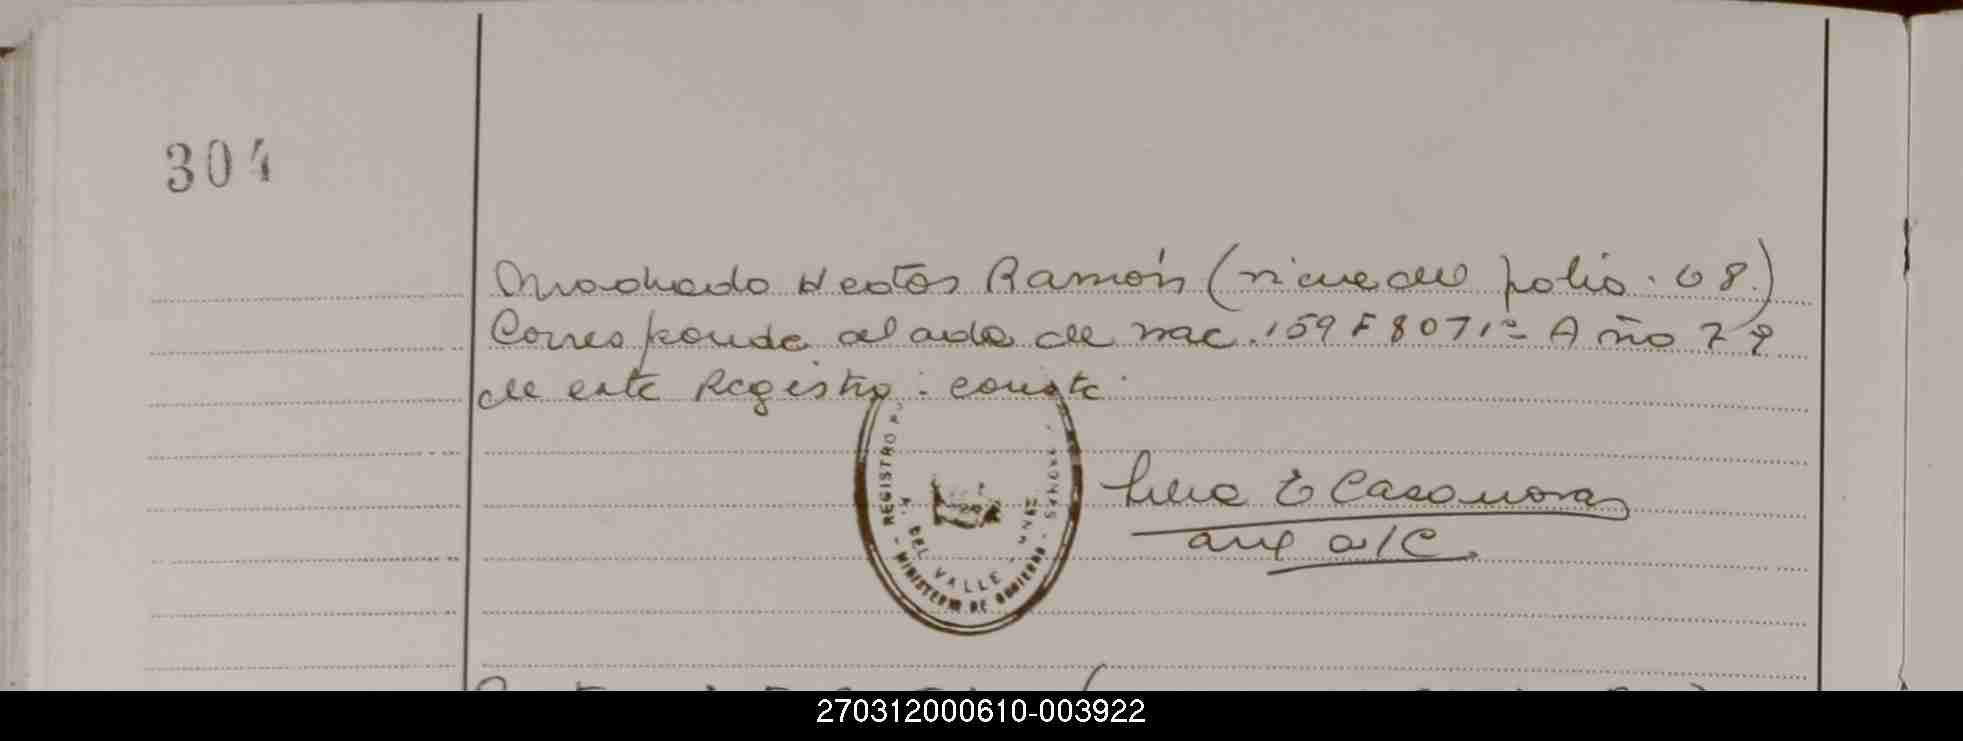 304
Machado Hector Ramón (viene del folio. 08.)
Corresponde al acta de nac. 159 F 80 T 1º Año 79
de este Registro: conste.
REGISTRO
DEL VALLE
MINISTERIO DE GOBIERNO
E Casanova
aux a/c.
270312000610-003922